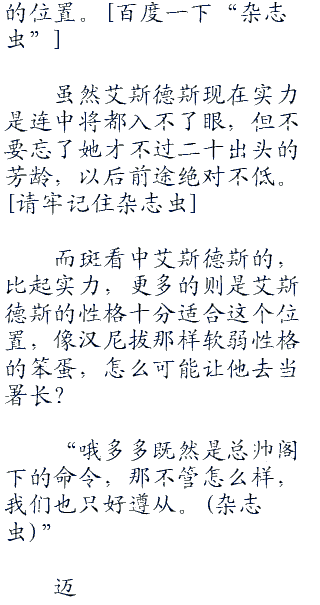 的位置。[百度一下“杂志
虫”]
虽然艾斯德斯现在实力
是连中将都入不了眼，但不
要忘了她才不过二十出头的
芳龄，以后前途绝对不低。
[请牢记住杂志虫]
而斑看中艾斯德斯的，
比起实力，更多的则是艾斯
德斯的性格十分适合这个位
置，像汉尼拔那样软弱性格
的笨蛋，怎么可能让他去当
署长？
“哦多多既然是总帅阁
下的命令，那不管怎么样，
我们也只好遵从。(杂志
虫)”
迈